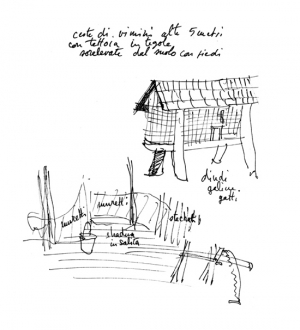 ceste di vimini alte 5 metri
con tettoia in tegole
sollevate dal suolo con piedi
dindi
galline
gatti
muretti
muretti
stecchati
strada
in salita